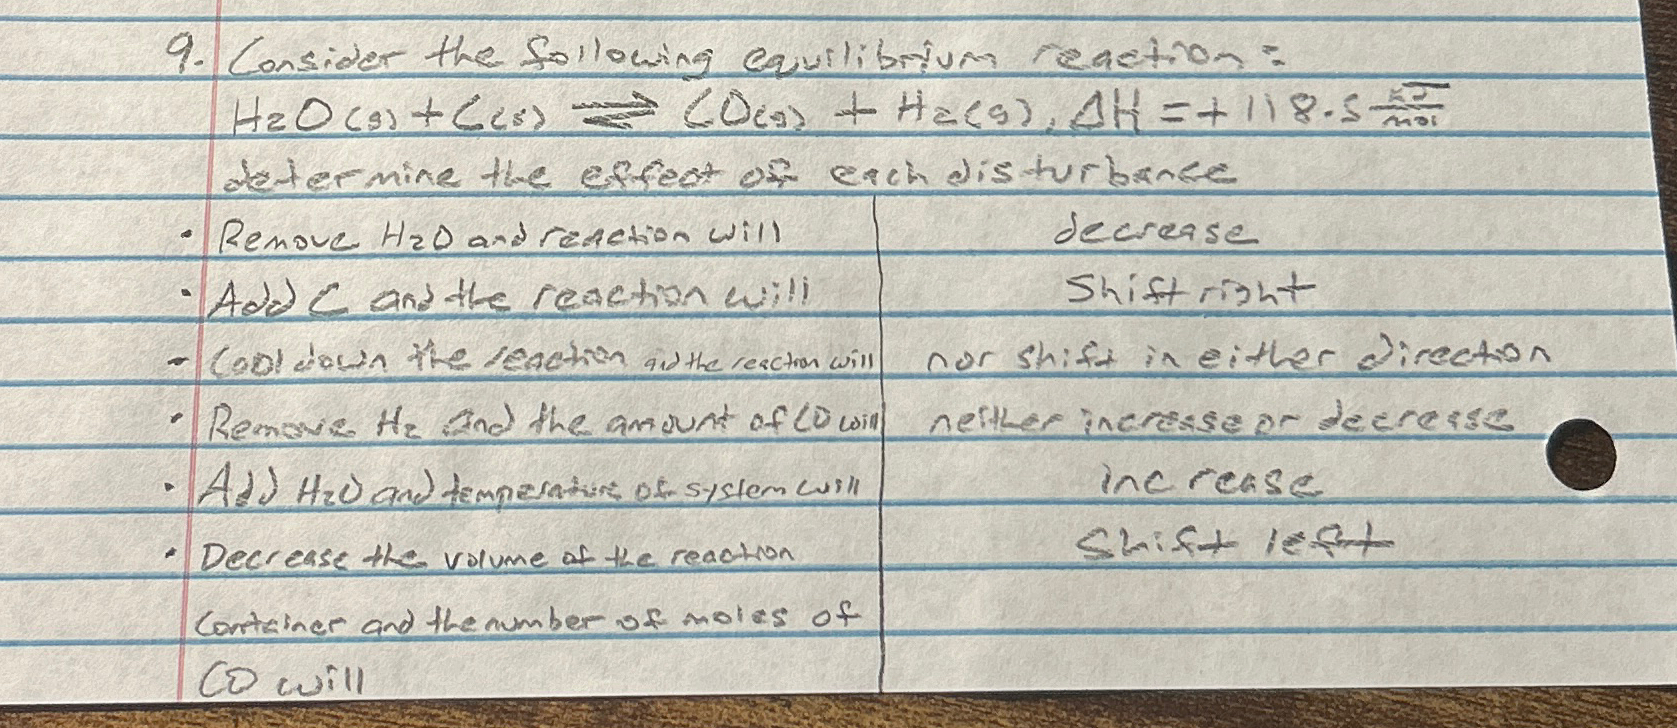 9. Consider the following equilibrium reaction:
H2O(g) + C(s) ⇌ CO(g) + H2(g), ΔH = +118.5 KJ/mol
determine the effect of each disturbance
• Remove H2O and reaction will decrease
• Add C and the reaction will Shift right
- Cool down the reaction and the reaction will nor shift in either direction
• Remove H2 and the amount of CO will neither increase or decrease
• Add H2O and temperature of system will increase
• Decrease the volume of the reaction Shift left
Container and the number of moles of
CO will